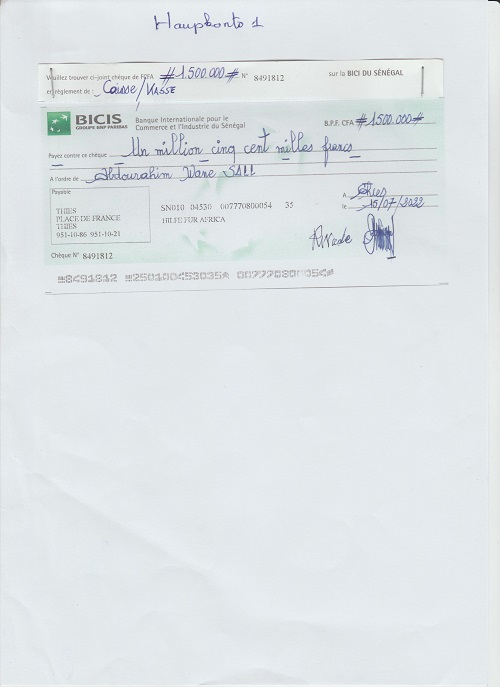 Haupkonto 1
Veuillez trouver ci-joint chèque de FCFA #1.500.000# N° 8491812 sur la BICI DU SÉNÉGAL
en règlement de : Caisse/KASSE
BICIS
GROUPE BNP PARIBAS
Banque Internationale pour le
Commerce et l'Industrie du Sénégal
B.P.F. CFA #1500.000#
Payez contre ce chèque Un million cinq cent milles francs
A l'ordre de Abdourahim Wane SALL
Payable
THIES
PLACE DE FRANCE
THIES
951-10-86 951-10-21
SN010 04530 007770800054 35
HILFE FUR AFRICA
A Thies
le 15/07/2022
Chèque N° 8491812
8491812 250100453035 007770800054